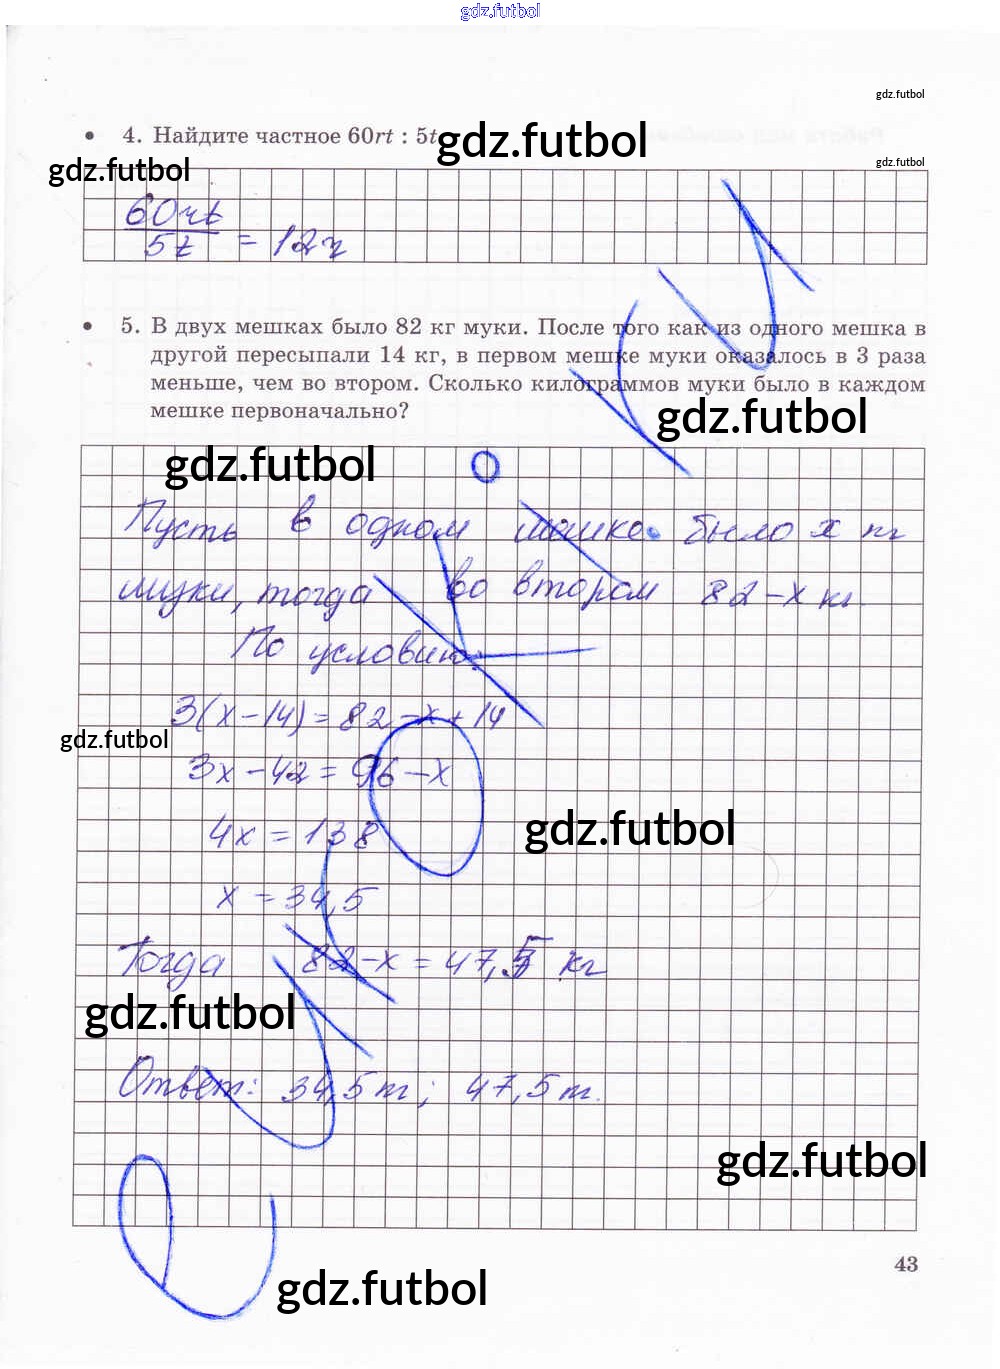 gdz.futbol
gdz.futbol
• 4. Найдите частное 60rt : 5t
gdz.futbol
gdz.futbol
gdz.futbol
60rt
5t = 12r
• 5. В двух мешках было 82 кг муки. После того как из одного мешка в
другой пересыпали 14 кг, в первом мешке муки оказалось в 3 раза
меньше, чем во втором. Сколько килограммов муки было в каждом
мешке первоначально?
gdz.futbol
gdz.futbol
Пусть в одном мешке было x кг
муки, тогда во втором 82-x кг.
По условию:
3(x-14)=82-x+14
gdz.futbol
3x-42=96-x
gdz.futbol
4x=138
x=34,5
Тогда 82-x=47,5 кг
gdz.futbol
Ответ: 34,5 т; 47,5 т.
gdz.futbol
43
gdz.futbol